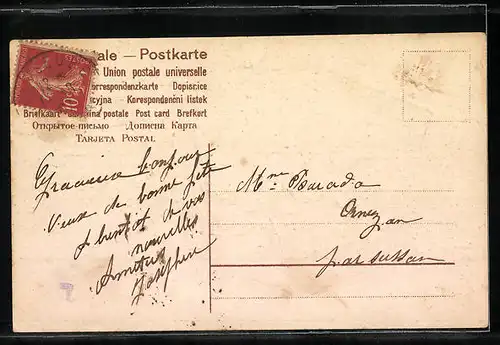 ale — Postkarte
Union postale universelle
orrespondenzkarte Dopisnice
cyjna - Korespondenční listek
Briefkaart - postale Post card Brefkort
Открытое письмо Дописна Карта
TARJETA POSTAL
10
Gracieuse bonjour
Veux de bonne fête
A bientot de vos
nouvelles
Amities
Joséphine
Mme Barada
par sussan
T